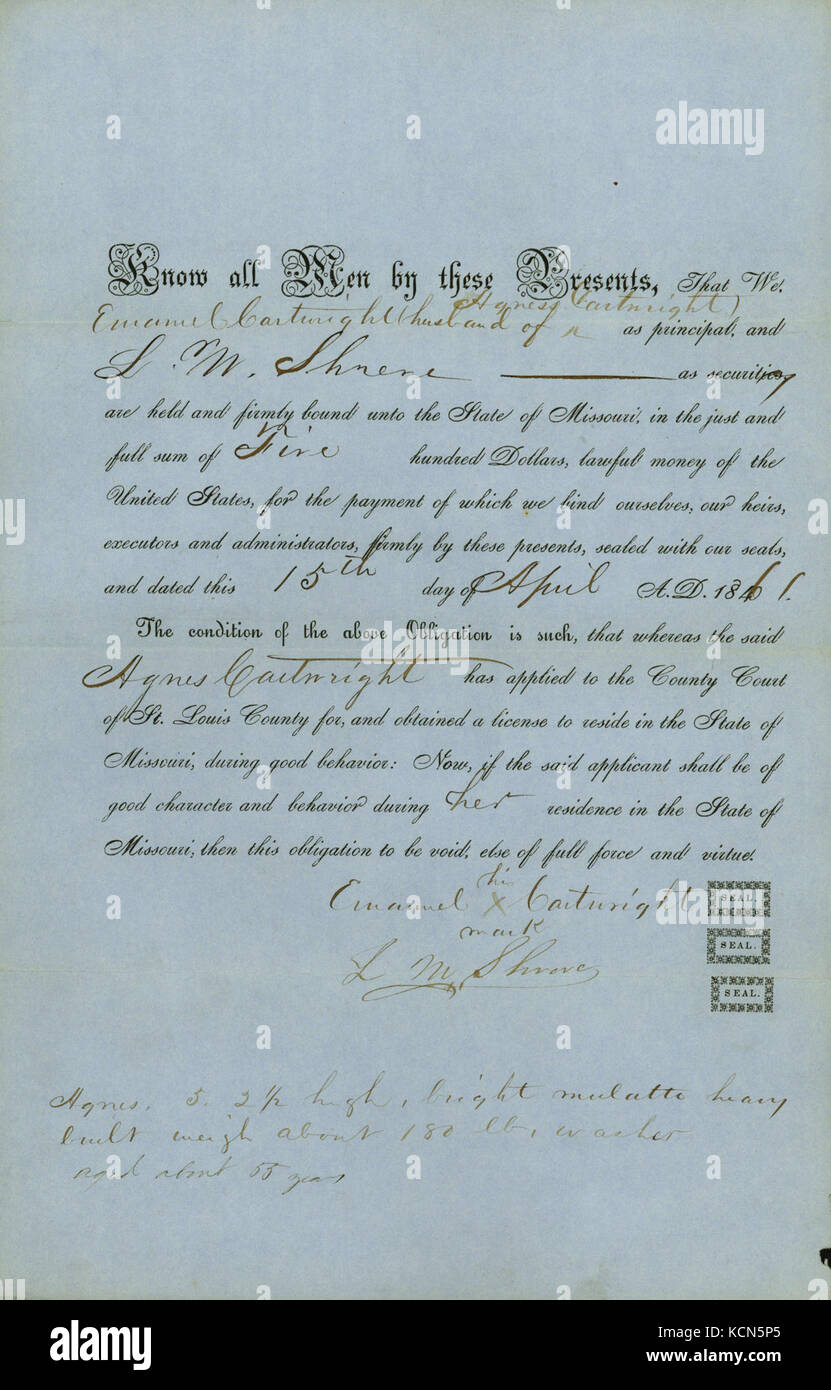 Know all Men by these Presents, That We,
Agnes Cartwright)
Emanuel Cartwright (husband of ^ as principal, and
L. M. Shreve as securities,
are held and firmly bound unto the State of Missouri, in the just and
full sum of Five hundred Dollars, lawful money of the
United States, for the payment of which we bind ourselves, our heirs,
executors and administrators, firmly by these presents, sealed with our seals,
and dated this 15th day of April A.D. 1861.
The condition of the above Obligation is such, that whereas the said
Agnes Cartwright has applied to the County Court
of St. Louis County for, and obtained a license to reside in the State of
Missouri, during good behavior: Now, if the said applicant shall be of
good character and behavior during her residence in the State of
Missouri, then this obligation to be void, else of full force and virtue.
his
Emanuel X Cartwright SEAL.
mark
SEAL.
L M Shreve
SEAL.
Agnes. 5. 2 1/2 high, bright mulatto heavy
built weigh about 180 lb, washer
aged about 55 years
a alamy
alamy
Image ID: KCN5P5
www.alamy.com